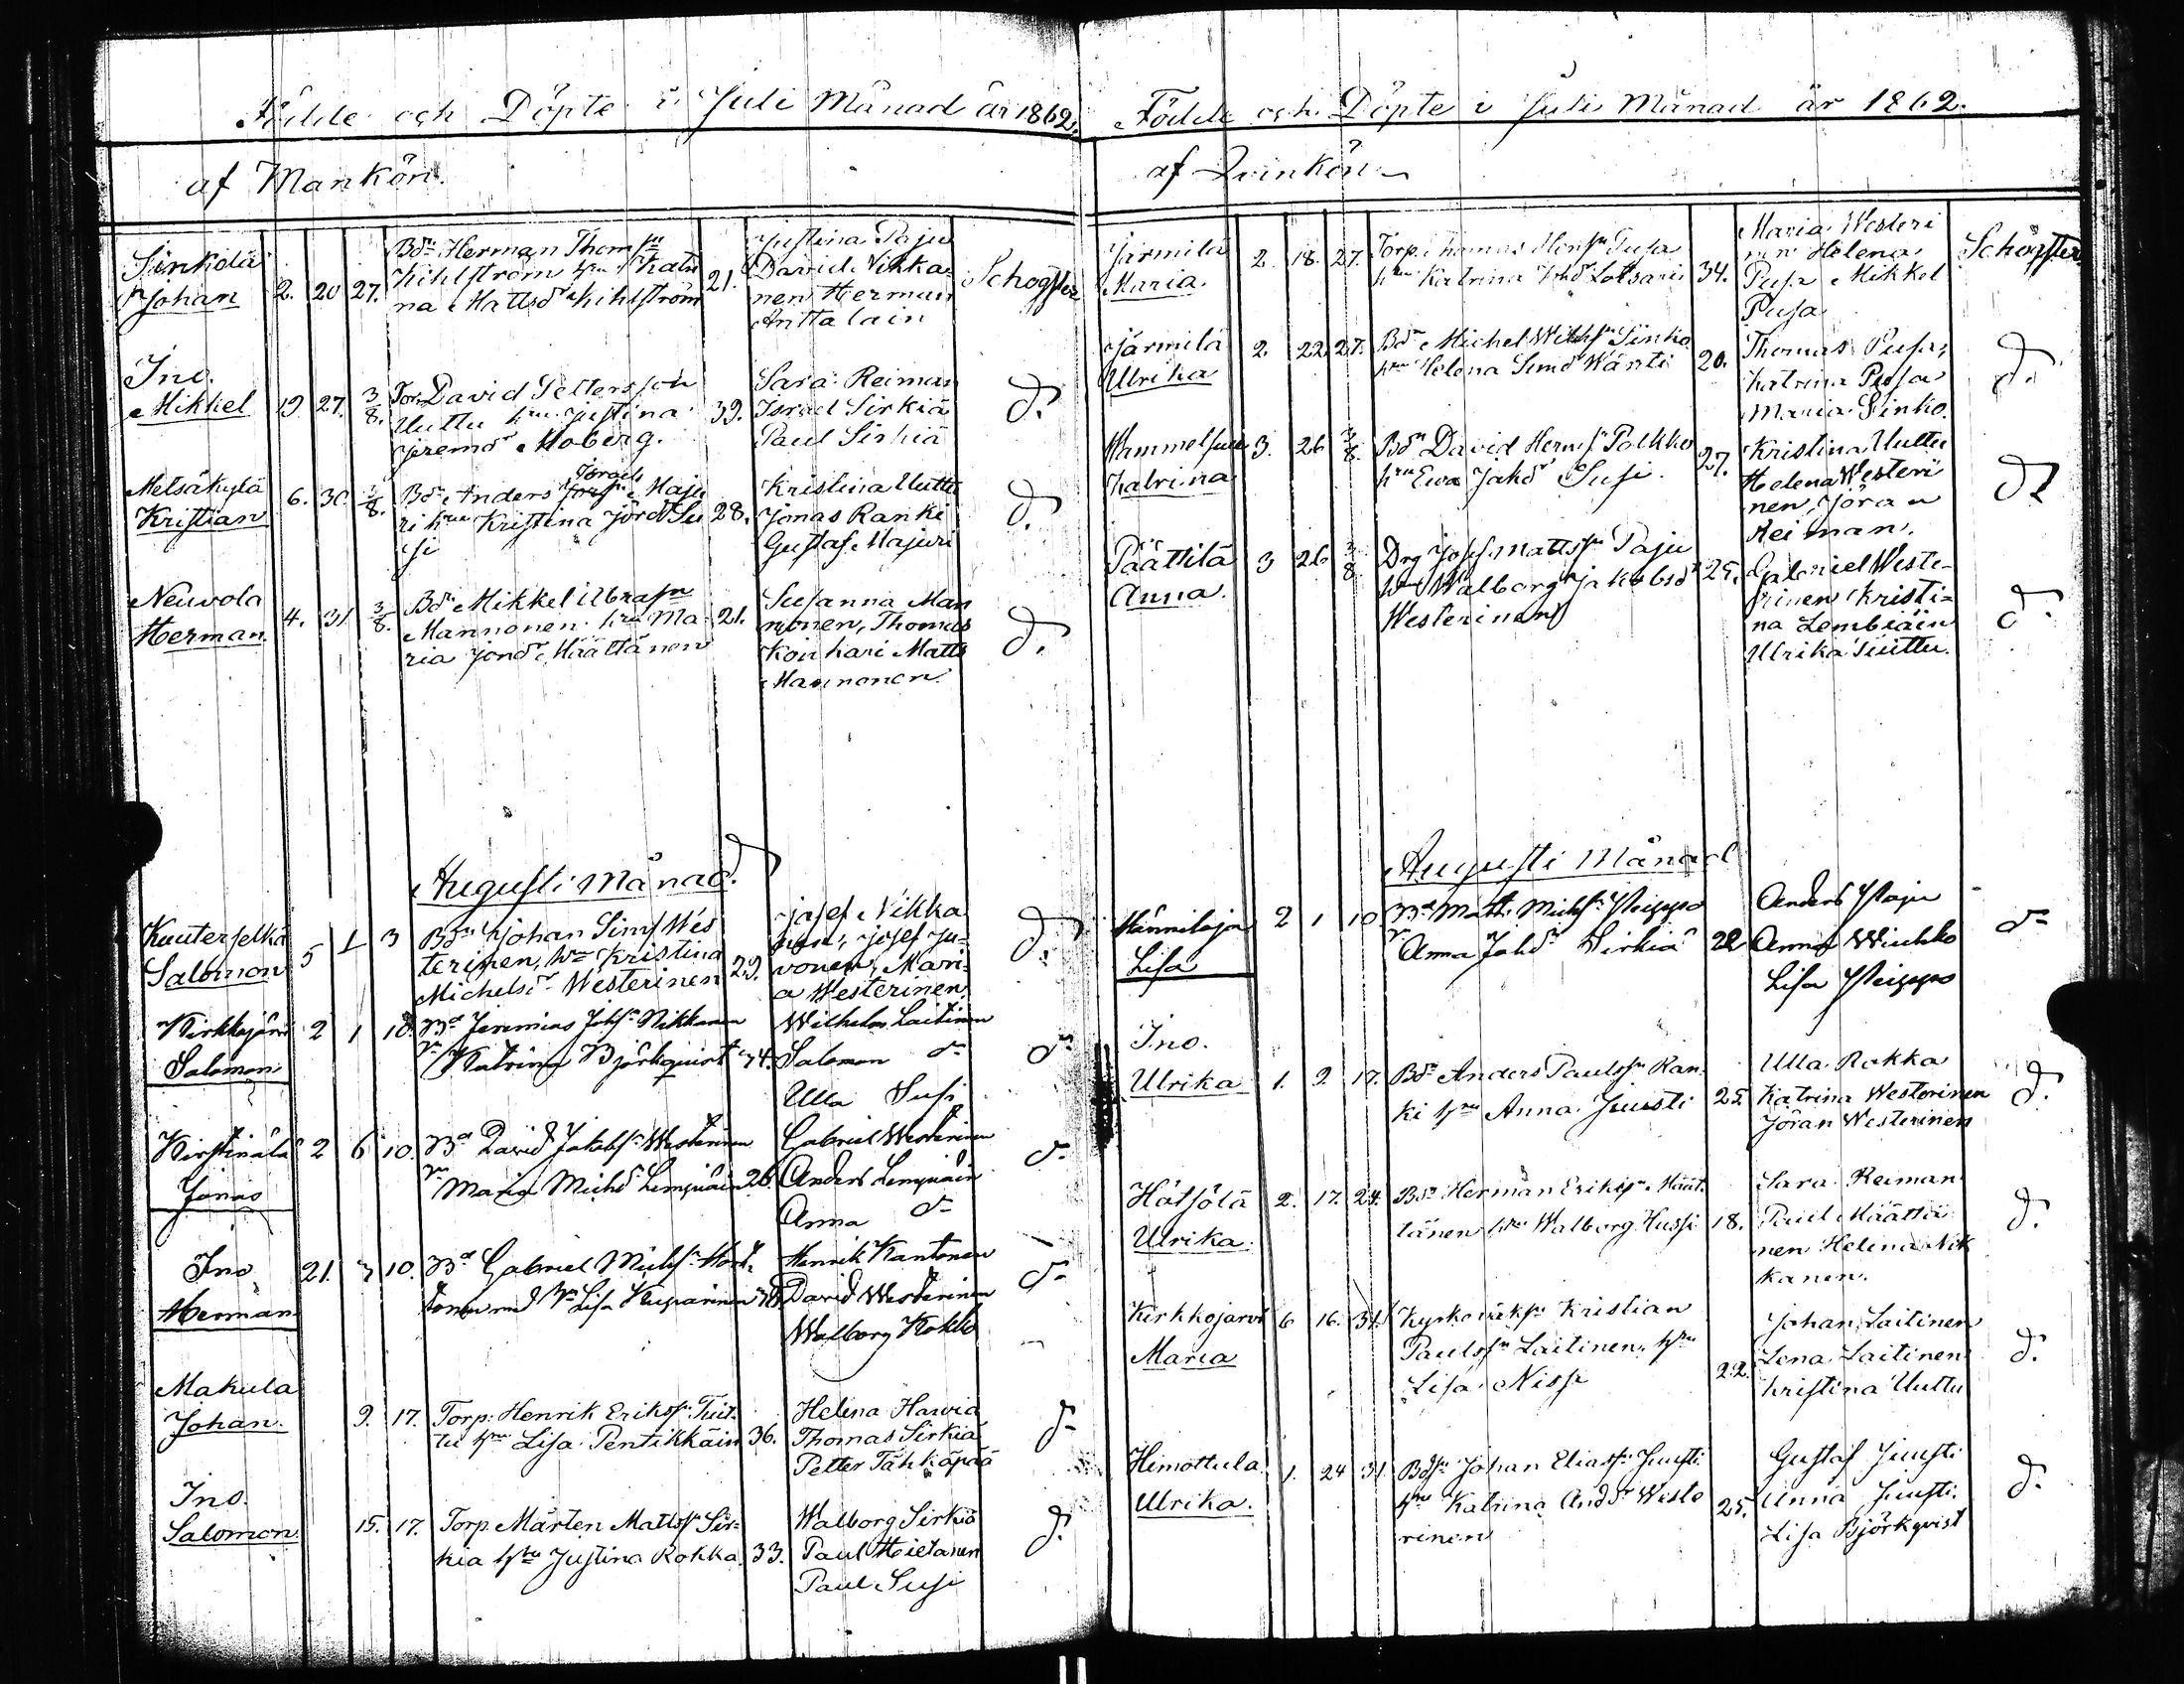 Födde och Döpte i Juli Månad år 1862.
af Mankön.
Sinkola
Johan
2. 20 27.
Bdn Herman Thomsn
Kihlström hru Katri
na Mattsdr Kihlström
21.
Justina Paju
David Nikka-
nen Herman
Anttalain
Schögster
Ino.
Mikkel
19. 27. 3/8.
Torp David Pettersson
Uuttu hru Justina
Jeremdr Moberg.
39.
Sara Reiman
Israel Sirkiä
Paul Sirkiä
d:o
Metsäkylä
Kristian
6. 30. 3/8.
Israels
Bdn Anders Maju
ri hru Kristina Jördr Su
si
28.
Kristina Uuttu
Jonas Ranki
Gustaf Majuri
d:o
Neuvola
Herman
4. 31 3/8.
Bdn Mikkel Abrasn
Mannonen hru Ma-
ria Jondr Määttänen
21.
Susanna Man
nonen, Thomas
Koirikari Matts
Mannonen.
d:o
Augusti Månad.
Kuuterselkä
Salomon
5 1 3
Bdn Johan Sims Wes
terinen, hru Kristina
Michelsdr Westerinen
29.
Josef Nikka
nen, Josef Ju-
vonen, Mari-
a Westerinen
d:o
Kirkkojärvi
Salomon
2 1 10.
Bd Jeremias Johsn Nikkanen
Katrina Björkquist 34.
Wilhelm Laitinen
Salomon d:o
Ulla Susi
d:o
Kirstinälä
Jonas
2 6 10.
Bd David Jakobsn Westerinen
Maria Michdr Lempiäin 26.
Gabriel Westerinen
Anders Lempiäin
Anna d:o
d:o
Ino
Herman
21. 3 10.
Bd Gabriel Michsn
Henrik Kantonen
David Westerinen
Walborg Kokko
d:o
Makula
Johan.
9. 17.
Torp. Henrik Eriksn Tuit-
tu hru Lisa Pentikkäin
36.
Helena Hawia
Thomas Sirkiä
Petter Tähkäpää
d:o
Ino.
Salomon
15. 17.
Torp. Mårten Mattsn Sir-
kia hru Justina Rokka
33.
Walborg Sirkiä
Paul Hietanen
Paul Susi
d:o
Födde och Döpte i Juli Månad år 1862.
af Qvinkön
Jarmila
Maria.
2. 18. 27.
Torp. Thomas Hensn Pusa
hru Katrina Johdr Lotsari
34.
Maria Westeri
nen Helena
Pusa Mikkel
Pusa
Schögster
Jarmila
Ulrika
2. 22. 27.
Bdn Michel Willsn Sinko
hru Helena Simdr Wänti
20.
Thomas Pusa,
Katrina Pusa
Maria Sinko.
d:o
Katrina
3. 26 3/8.
Bdn David Hermsn Polkko
hru Ewa Jakdr Susi.
27.
Kristina Uuttu
Helena Westeri
nen, Jöran
Reiman.
d:o
Päättilä
Anna.
3 26 3/8
Drg Josef Mattssn Paju
hru Walborg Jakobsdr
Westerinen
25.
Gabriel Weste-
rinen Kristi-
na Lembiäin
Ulrika Tuittu.
d:o
Augusti Månad
Lisa
2 1 10
Bd Matts Michsn Peippo
Anna Johdr Sirkiä
22
Anders Paju
Anna Wiukko
Lisa Peippo
d:o
Ino.
Ulrika
1. 9. 17.
Bdn Anders Paulssn Ran-
ki hru Anna Juusti
25
Ulla Rokka
Katrina Westerinen
Jöran Westerinen
d:o
Hätjölä
Ulrika.
2. 17. 24.
Bdn Herman Eriksn Määt-
tänen hru Walborg Hussi
18.
Sara Reiman
Paul Määttä
nen Helena Nik
kanen.
d:o
Kirkkojarvi
Maria
6 16. 31.
Kyrkowäkt Kristian
Paulssn Laitinen, hru
Lisa Nissi
22.
Johan Laitinen
Lena Laitinen
Kristina Uuttu
d:o
Himottula.
Ulrika.
1. 24 31.
Bdsn Johan Eliassn Juusti
hru Katrina Anddr Weste
rinen
25.
Gustaf Juusti
Anna Juusti.
Lisa Björkqvist
d:o